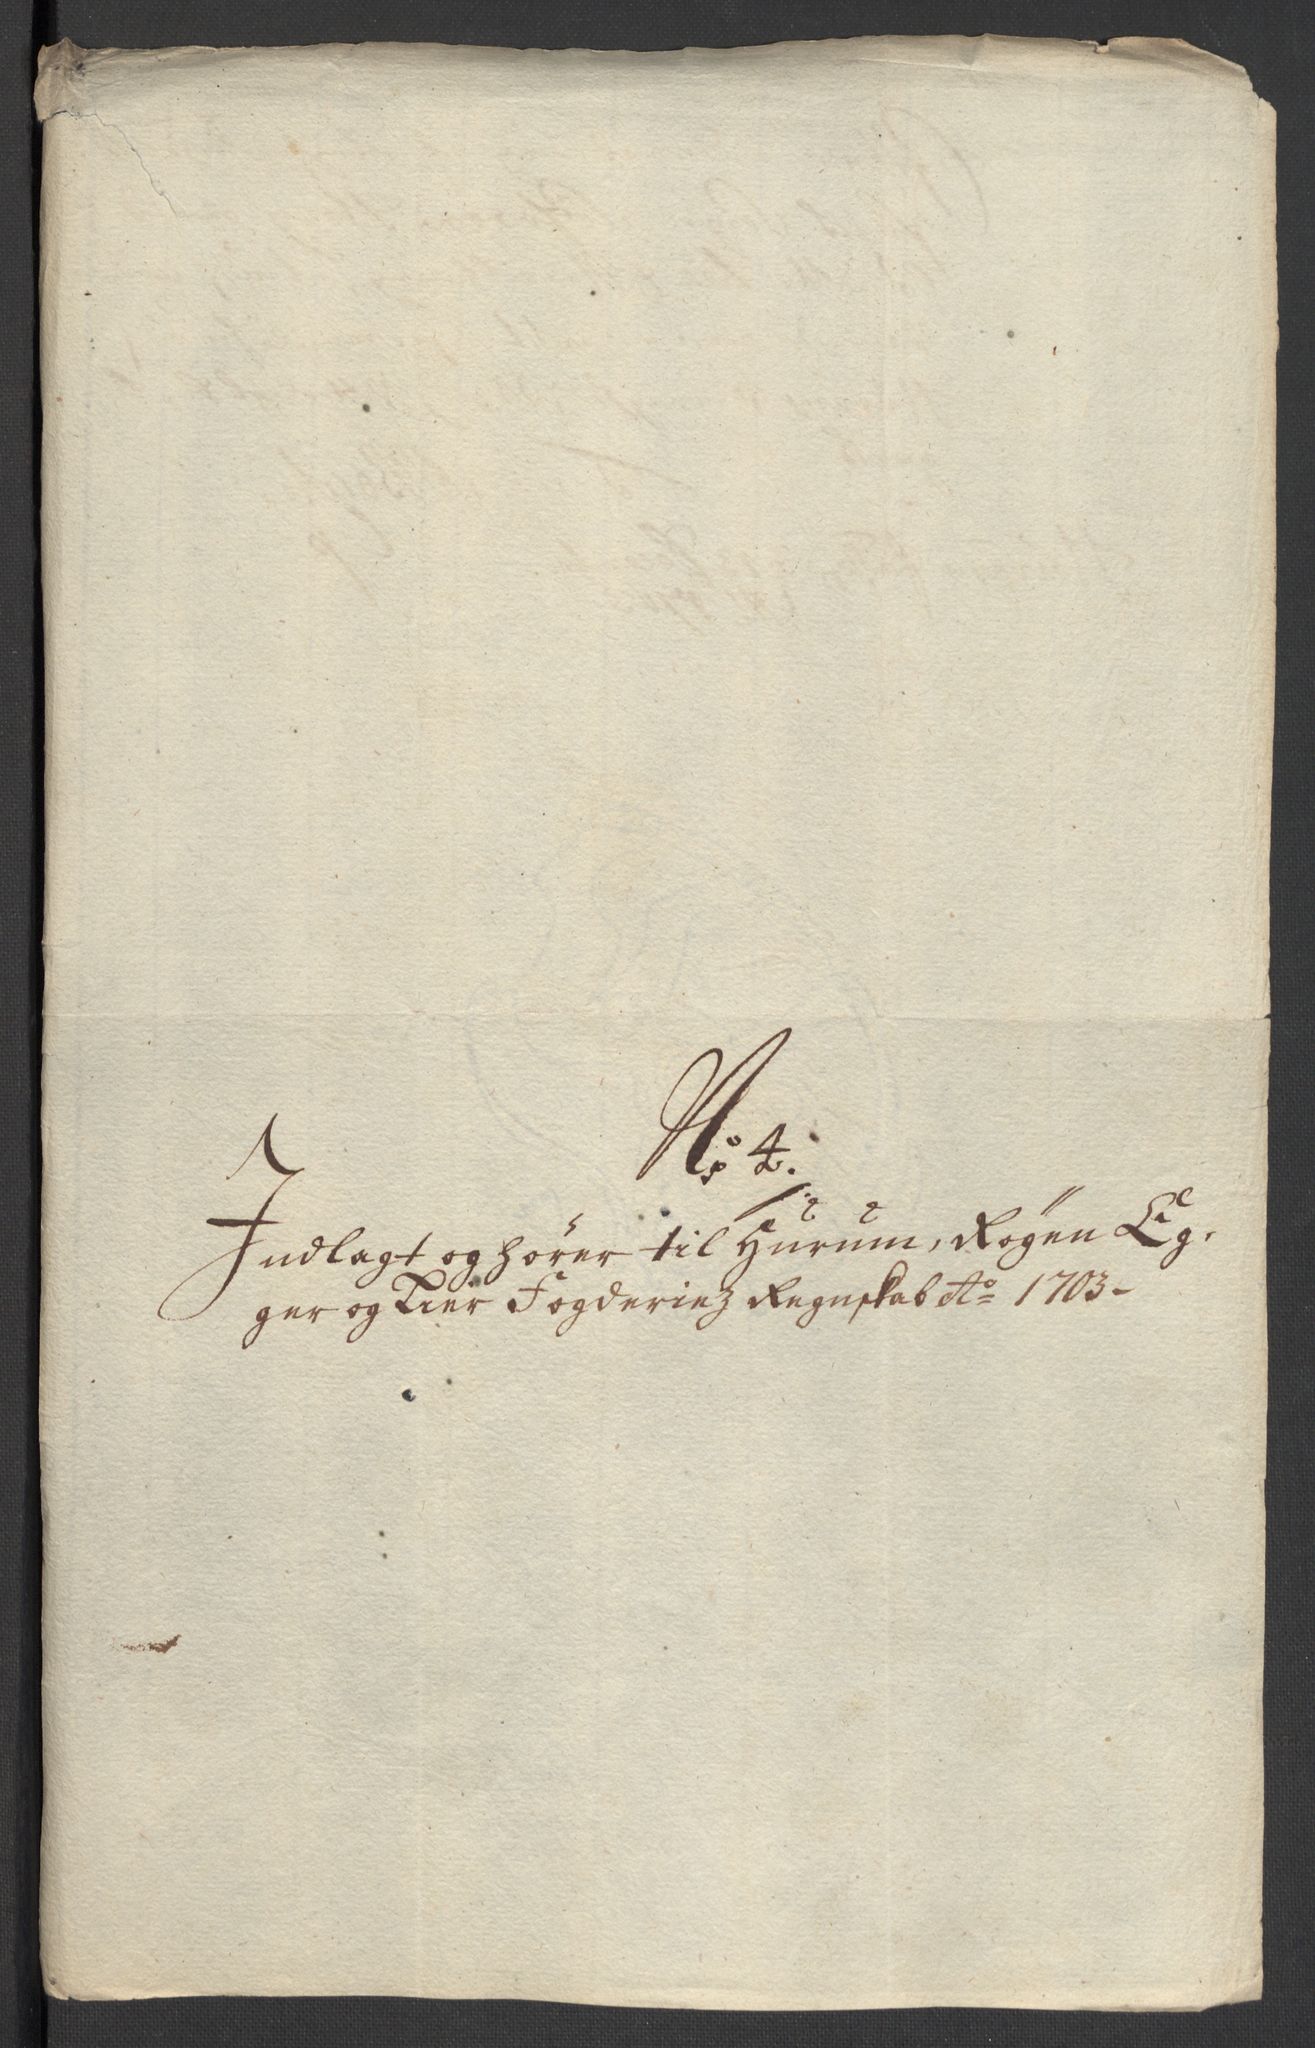 No 4.
Indlagt og hører til Hurum, Røgen Eg,
ger og Lier Fogderiez Regnskab Ao 1703-